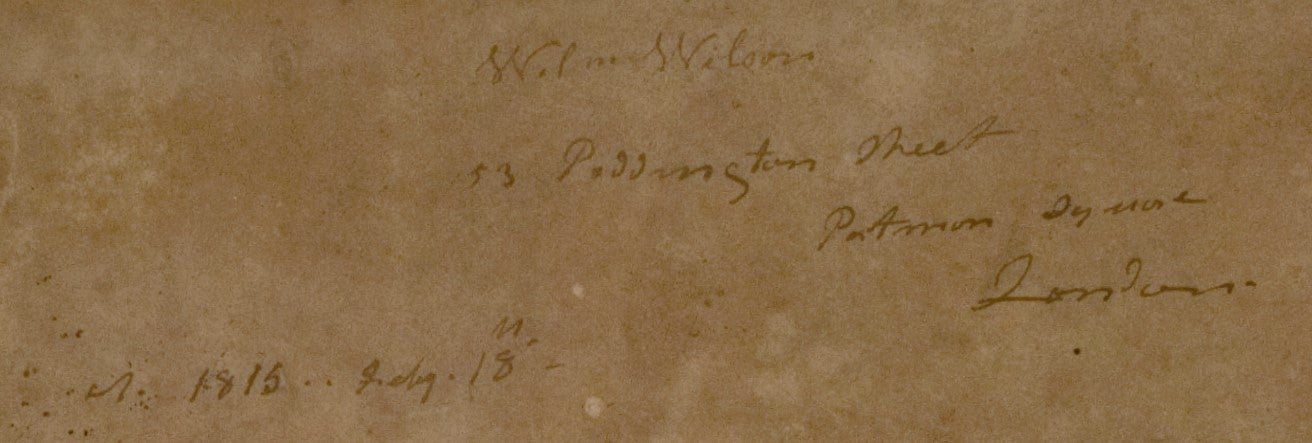 Wilm Wilson
53 Paddington Street
Portman Square
London.
1815 .. July. 18